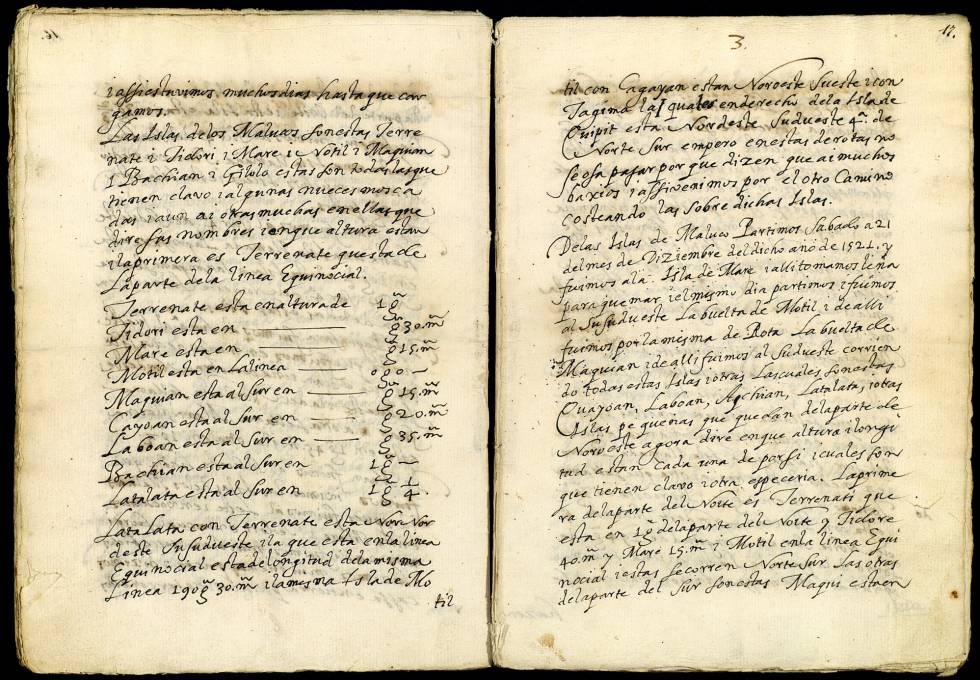 16.
i assi estavimos muchos dias hasta que car
gamos.
Las Islas delos Malucos son estas Terre
nate i Tidori i Mare i Motil i Maquian
i Bachian i Gilolo estas son todas las que
tienen clavo i algunas nueces mosca
das i aun ai otras muchas en ellas que
dire sus nombres i en que altura estan
i la primera es Terrenate questa de
la parte dela linea Equinocial.
Terrenate esta en altura de 1 g
Tidori esta en g 30. m
Mare esta en g 15. m
Motil esta en La linea 0 g 0
Maquian esta al Sur en g 15. m
Cayoan esta al Sur en g 20. m
Laboan esta al Sur en g 35. m
Bachian esta al Sur en 1 g
Latalata esta al Sur en 1 g 1/4.
LataLata con Terrenate esta Nor Nor
deste Su Sudueste i la que esta en la linea
Equinocial esta de longitud de la misma
Linea 190 g 30. m i la mesma Isla de Mo
til
17.
3.
til con Cagayan estan Noroeste Sueste i con
Tagima la qual es en derecho dela Isla de
Quipit esta Nordeste Sudueste 4ª. de
Norte Sur empero en estas derotas no
se osa pasar por que dizen que ai muchos
baxios i assi venimos por el otro Camino
costeando las sobre dichas Islas.
Delas Islas de Maluco Partimos Sabado a 21
del mes de Diziembre del dicho año de 1521. y
fuimos a la Isla de Mare i alli tomamos leña
para quemar i el mismo dia partimos i fuimos
al Susudueste La buelta de Motil i de alli
fuimos por la misma de Rota La buelta de
Maquian i de alli fuimos al Sudueste corrien
do todas estas Islas i otras Las cuales son estas
Quayoan, Laboan, Aqchian, Latalata, i otras
Islas pequeñas que quedan dela parte de
Noroeste agora dire en que altura i longi
tud estan cada una de por si i cuales son
que tienen clavo i otra especeria. La prime
ra de la parte del Norte es Terrenati que
esta en 1 g de la parte del Norte y Tidore
40. m y Mare 15. m i Motil en la linea Equi
nocial i estas se corren Norte Sur. Las otras
dela parte del Sur son estas Maqui esta en